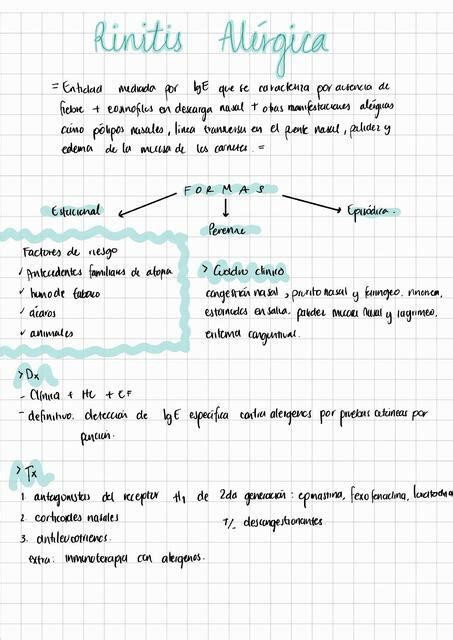 Rinitis Alérgica
= Entidad mediada por IgE que se caracteriza por ausencia de
fiebre + eosinofilos en descarga nasal + otras manifestaciones alérgicas
cómo pólipos nasales, línea transversa en el puente nasal, palidez y
edema de la mucosa de los cornetes. =
FORMAS
Estacional
Perenne
Episódica.
Factores de riesgo
✓ Antecedentes familiares de atopia
✓ humo de tabaco
✓ ácaros
✓ animales
> Cuadro clínico
congestión nasal, prurito nasal y faríngeo. rinorrea,
estornudos en salva. palidez mucosa nasal y lagrimeo.
eritema conjuntival.
> Dx
- Clínica + HC + EF
- definitivo. detección de IgE específica contra alergenos por pruebas cutáneas por
punción.
> Tx
1. antagonistas del receptor H1 de 2da generación: epinastina, fexofenadina,
2. corticoides nasales
+/- descongestionantes
3. antileucotrienos.
extra: inmunoterapia con alergenos.